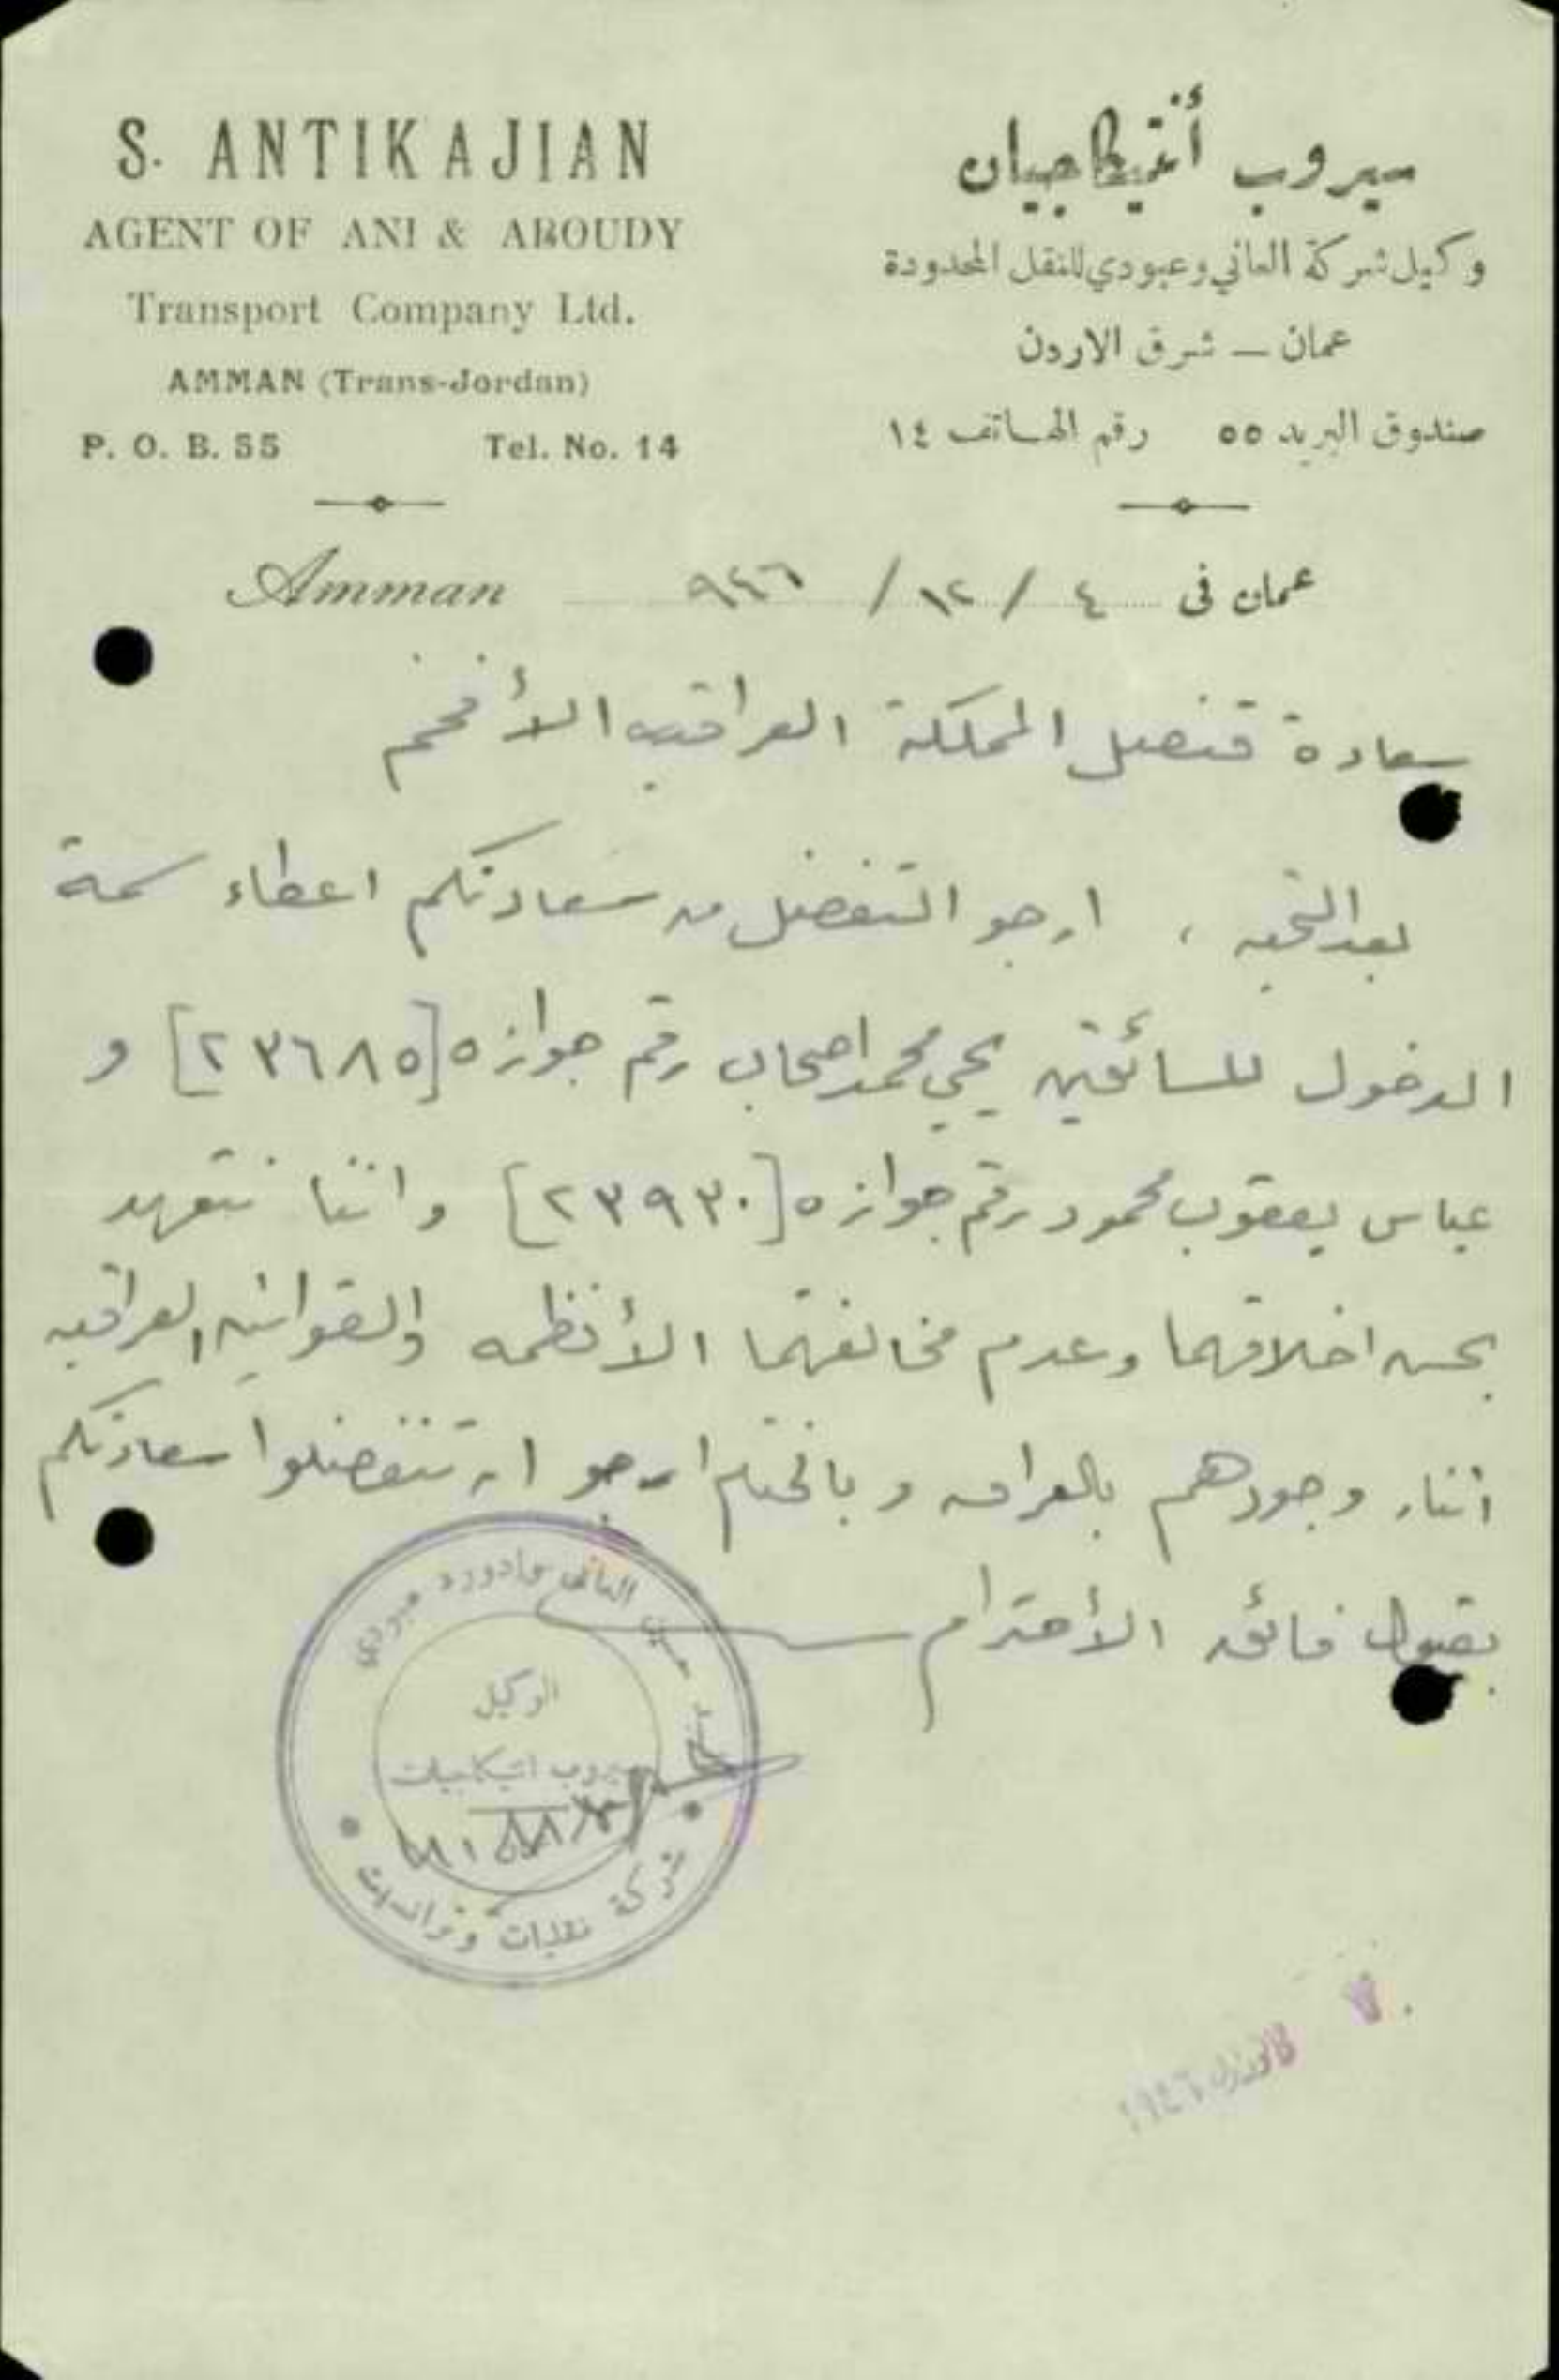 S. ANTIKAJIAN
AGENT OF ANI & ABOUDY
Transport Company Ltd.
AMMAN (Trans-Jordan)
P. O. B. 55 Tel. No. 14
سيروب أنتيكاجيان
وكيل شركة العاني وعبودي للنقل المحدودة
عمان — شرق الاردن
صندوق البريد ٥٥ رقم الهاتف ١٤
Amman
عمان في ٤ / ١٢ / ٩٤٦
سعادة قنصل المملكة العراقيه الأفخم
بعد التحيه ، ارجو التفضل من سعادتكم اعطاء سمة
الدخول للسائقين يحي محمد اصحاب رقم جوازه [٢٣٦٨٥] و
عباس يعقوب محمود رقم جوازه [٢٣٩٣٠] واننا نتعهد
بحسن اخلاقهما وعدم مخالفتهما الأنظمه والقوانين العراقيه
اثناء وجودهم بالعراق وبالختام ارجو ان تتفضلوا سعادتكم
بقبول فائق الأحترام
حسن العاني وادورد عبودي
الوكيل
سيروب انتيكاجيان
شركة نقليات وترانسيت
١٩٤٦